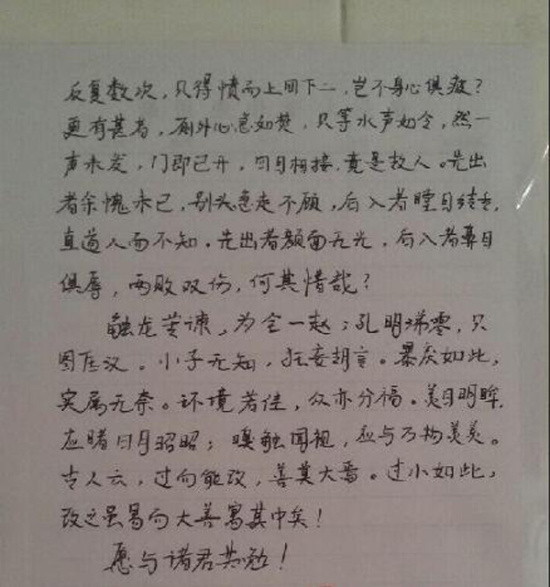 反复数次，只得愤而上回下二，岂不身心俱疲？
更有甚者，厕外心急如焚，只等水声如令，然一
声未发，门即已开，四目相接，竟是故人。先出
者余愧未已，别头急走不顾，后入者瞠目结舌，
直道人面不知。先出者颜面无光，后入者鼻目
俱辱，两败双伤，何其惜哉？
触龙苦谏，为全一赵；孔明涕零，只
图匡汉。小子无知，狂妄胡言。暴戾如此，
实属无奈。环境若佳，众亦分福。美目明眸，
应睹日月昭昭；嗅触闻视，应与万物美美。
古人云，过而能改，善莫大焉。过小如此，
改之虽易而大善寓其中矣！
愿与诸君共勉！